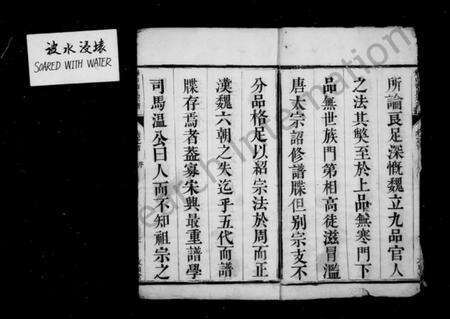 被水浸壞
SOARED WITH WATER
所論良足深慨魏立九品官人
之法其獘至於上品無寒門下
品無世族門第相高徒滋冒濫
唐太宗詔修譜牒但别宗支不
分品格足以紹宗法於周而正
漢魏六朝之失迄乎五代而譜
牒存焉者蓋寡宋興最重譜學
司馬温公曰人而不知祖宗之